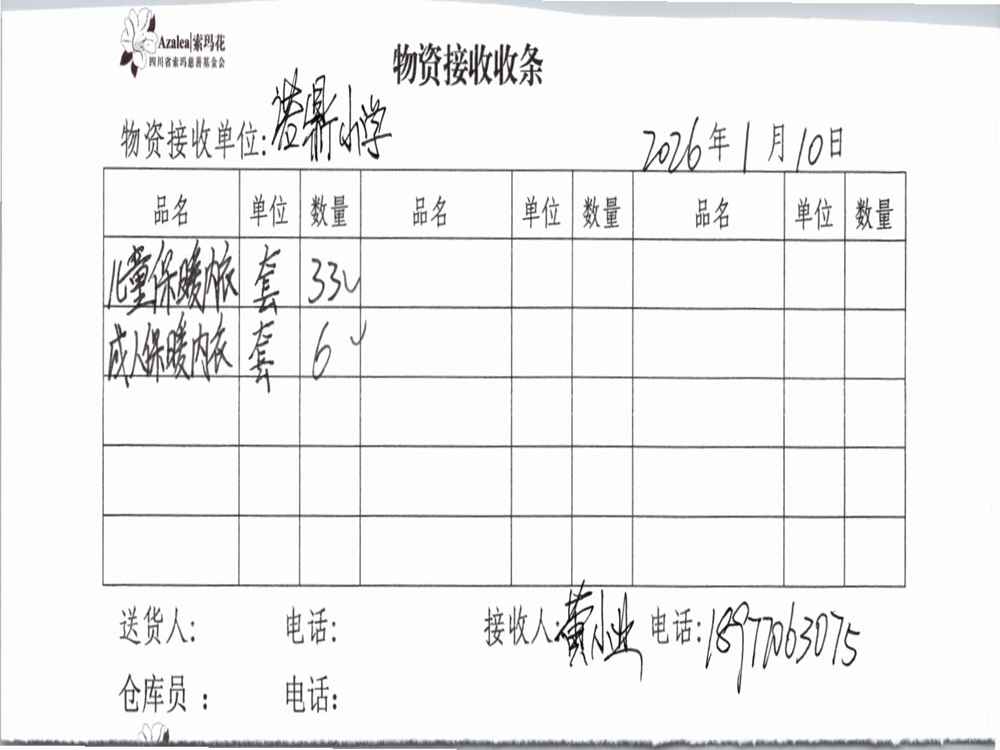 Azalea|索玛花
四川省索玛慈善基金会
物资接收收条
物资接收单位: 鼎小学
2026年1月10日
品名 单位 数量 品名 单位 数量 品名 单位 数量
儿童保暖内衣 套 33
成人保暖内衣 套 6
送货人: 电话: 接收人: 黄小业 电话: 18977063075
仓库员: 电话: